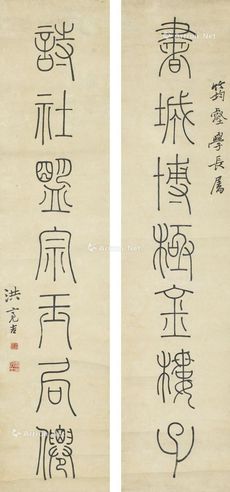 學長屬
書城博極金樓子
詩社盟宗玉局僊
洪亮吉